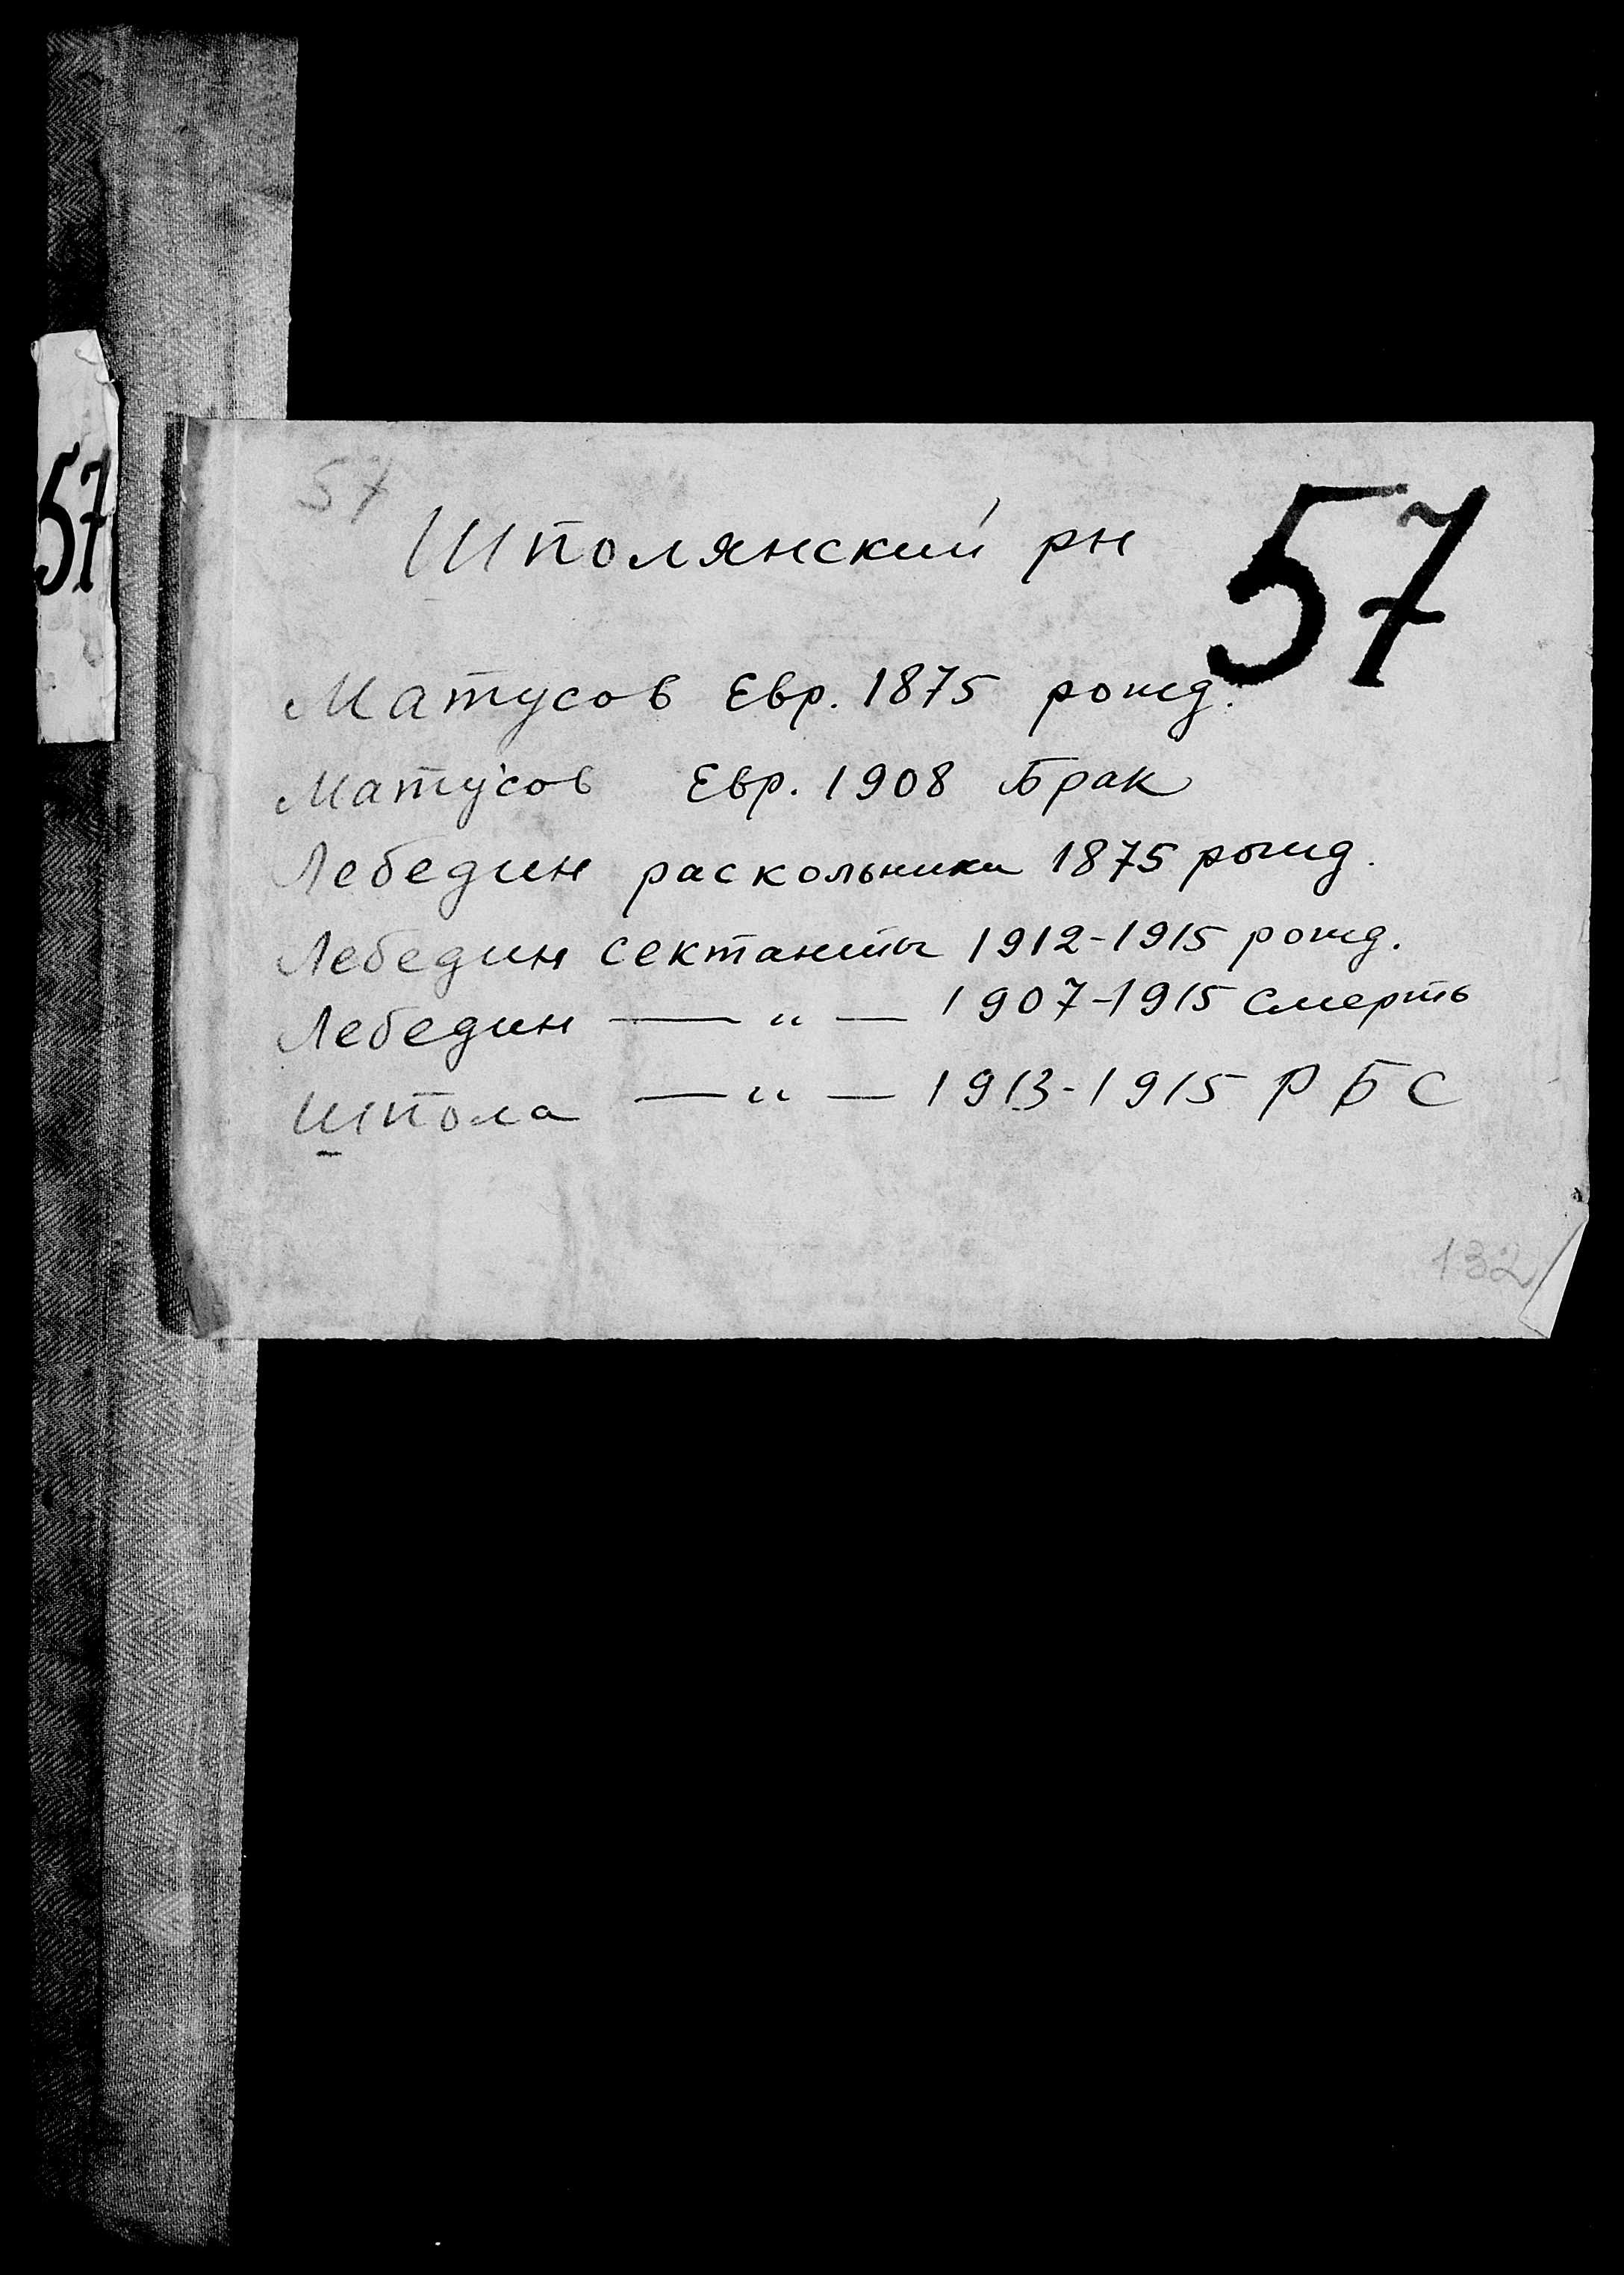 57
57
57
Шполянский рн
Матусов Евр. 1875 рожд.
Матусов Евр. 1908 Брак
Лебедин раскольники 1875 рожд.
Лебедин сектанты 1912-1915 рожд.
Лебедин — " — 1907-1915 смерть
Шпола — " — 1913-1915 Р Б С
132